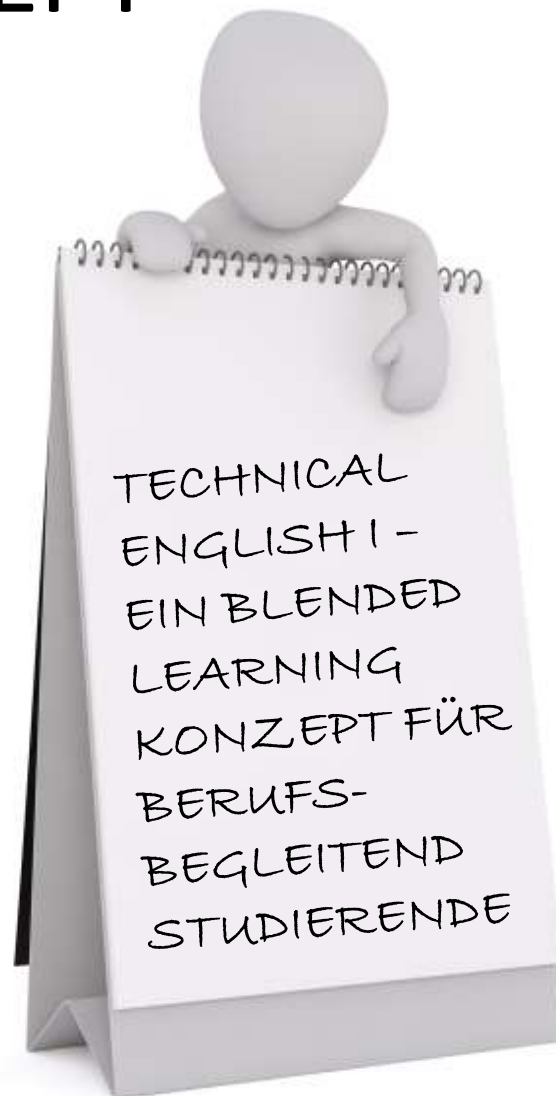 TECHNICAL
ENGLISH I –
EIN BLENDED
LEARNING
KONZEPT FÜR
BERUFS-
BEGLEITEND
STUDIERENDE